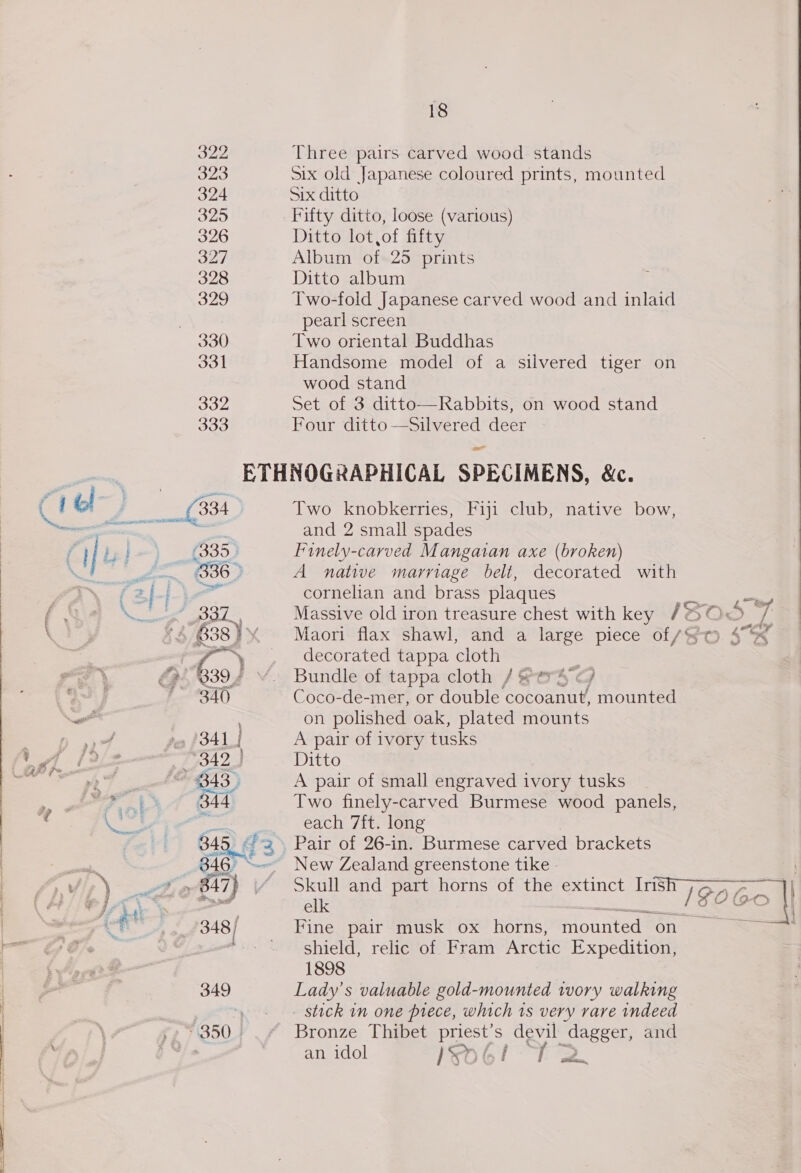 18
322 Three pairs carved wood stands
323 Six old Japanese coloured prints, mounted
324 Six ditto
325 Fifty ditto, loose (various)
326 Ditto lot, of fifty
327 Album of 25 prints
328 Ditto album
329 Two-fold Japanese carved wood and inlaid
pearl screen
330 Two oriental Buddhas
331 Handsome model of a silvered tiger on
wood stand
332 Set of 3 ditto—Rabbits, on wood stand
333 Four ditto—Silvered deer
ETHNOGRAPHICAL SPECIMENS, &c.
334 Two knobkerries, Fiji club, native bow,
and 2 small spades
335 Finely-carved Mangaian axe (broken)
336 A native marriage belt, decorated with
cornelian and brass plaques
337 Massive old iron treasure chest with key
338 Maori flax shawl, and a large piece of
decorated tappa cloth
339 Bundle of tappa cloth
340 Coco-de-mer, or double cocoanut, mounted
on polished oak, plated mounts
341 A pair of ivory tusks
342 Ditto
343 A pair of small engraved ivory tusks
344 Two finely-carved Burmese wood panels,
each 7ft. long
345 Pair of 26-in. Burmese carved brackets
346 New Zealand greenstone tike
347 Skull and part horns of the extinct Irish
elk 18060
348 Fine pair musk ox horns, mounted on
shield, relic of Fram Arctic Expedition,
1898
349 Lady's valuable gold-mounted ivory walking
stick in one piece, which is very rare indeed
350 Bronze Thibet priest's devil dagger, and
an idol 18061 / 2